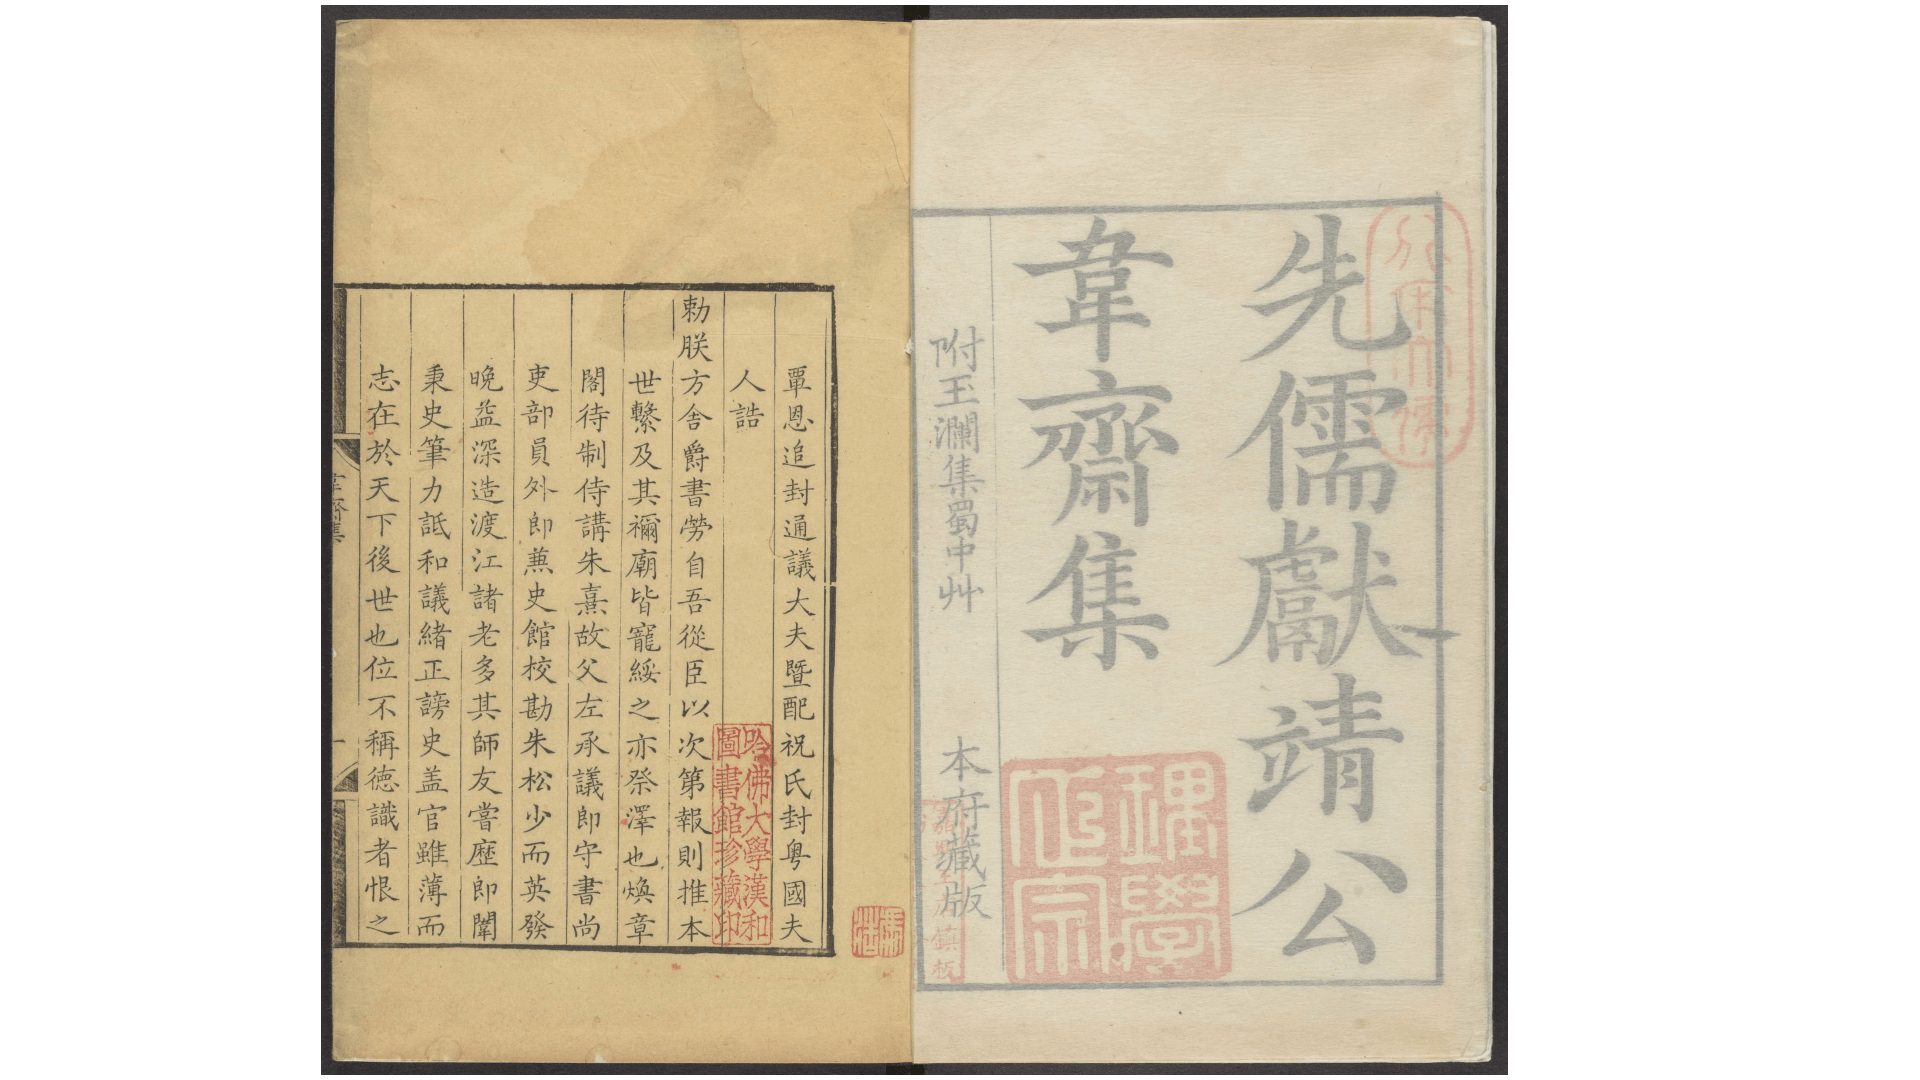 先儒獻靖公
韋齋集
附玉瀾集蜀中艸
本府藏版
理學
正宗
覃恩追封通議大夫暨配祝氏封粤國夫
人誥
勅朕方舍爵書勞自吾從臣以次第報則推本
世繫及其禰廟皆寵綏之亦祭澤也煥章
閣待制侍講朱熹故父左承議郎守書尚
吏部員外郎兼史館校勘朱松少而英發
晚益深造渡江諸老多其師友嘗歷郎闈
秉史筆力詆和議緒正謗史盖官雖薄而
志在於天下後世也位不稱德識者恨之
韋齋集
一
哈佛大學漢和
圖書館珍藏印